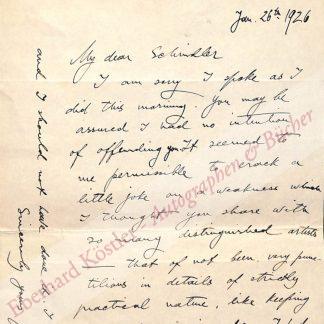 Jan. 26th 1926
My dear Schindler
I am sorry I spoke as I
did this morning. You may be
assured I had no intention
of offending you. It seemed to
me permissible to crack a
little joke on a weakness which
I thought you share with
so many distinguished artists
— that of not been very punc-
tilious in details of strictly
practical nature, like keeping
and I should not have done it. I
Sincerely yours
Eberhard Köstler - Autographen & Bücher